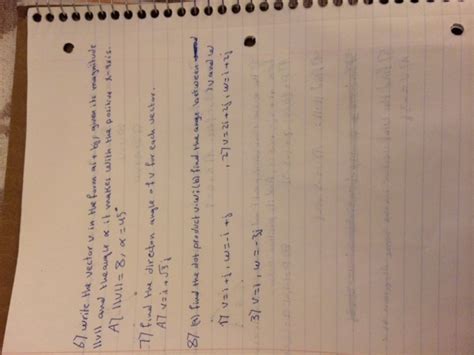 6) Write the vector v in the form ai + bj, given its magnitude
||v|| and the angle α it makes with the positive x-axis.
A) ||v|| = 8, α = 45°
7) Find the direction angle of v for each vector.
A) v = i + √3 j
8) (a) Find the dot product v·w; (b) find the angle between
v and w
1) v = i + j, w = -i + j , 2) v = 2i + 2j, w = i + 2j
3) v = i, w = -3j